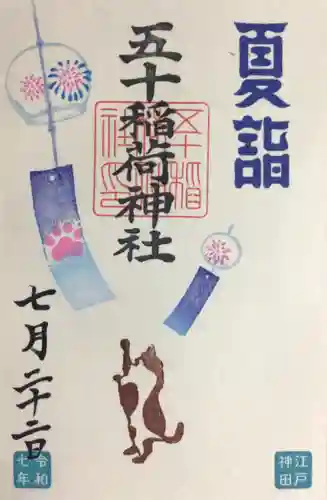 夏詣
五十稲荷神社
七月二十二日
令和
七年
江戸
神田